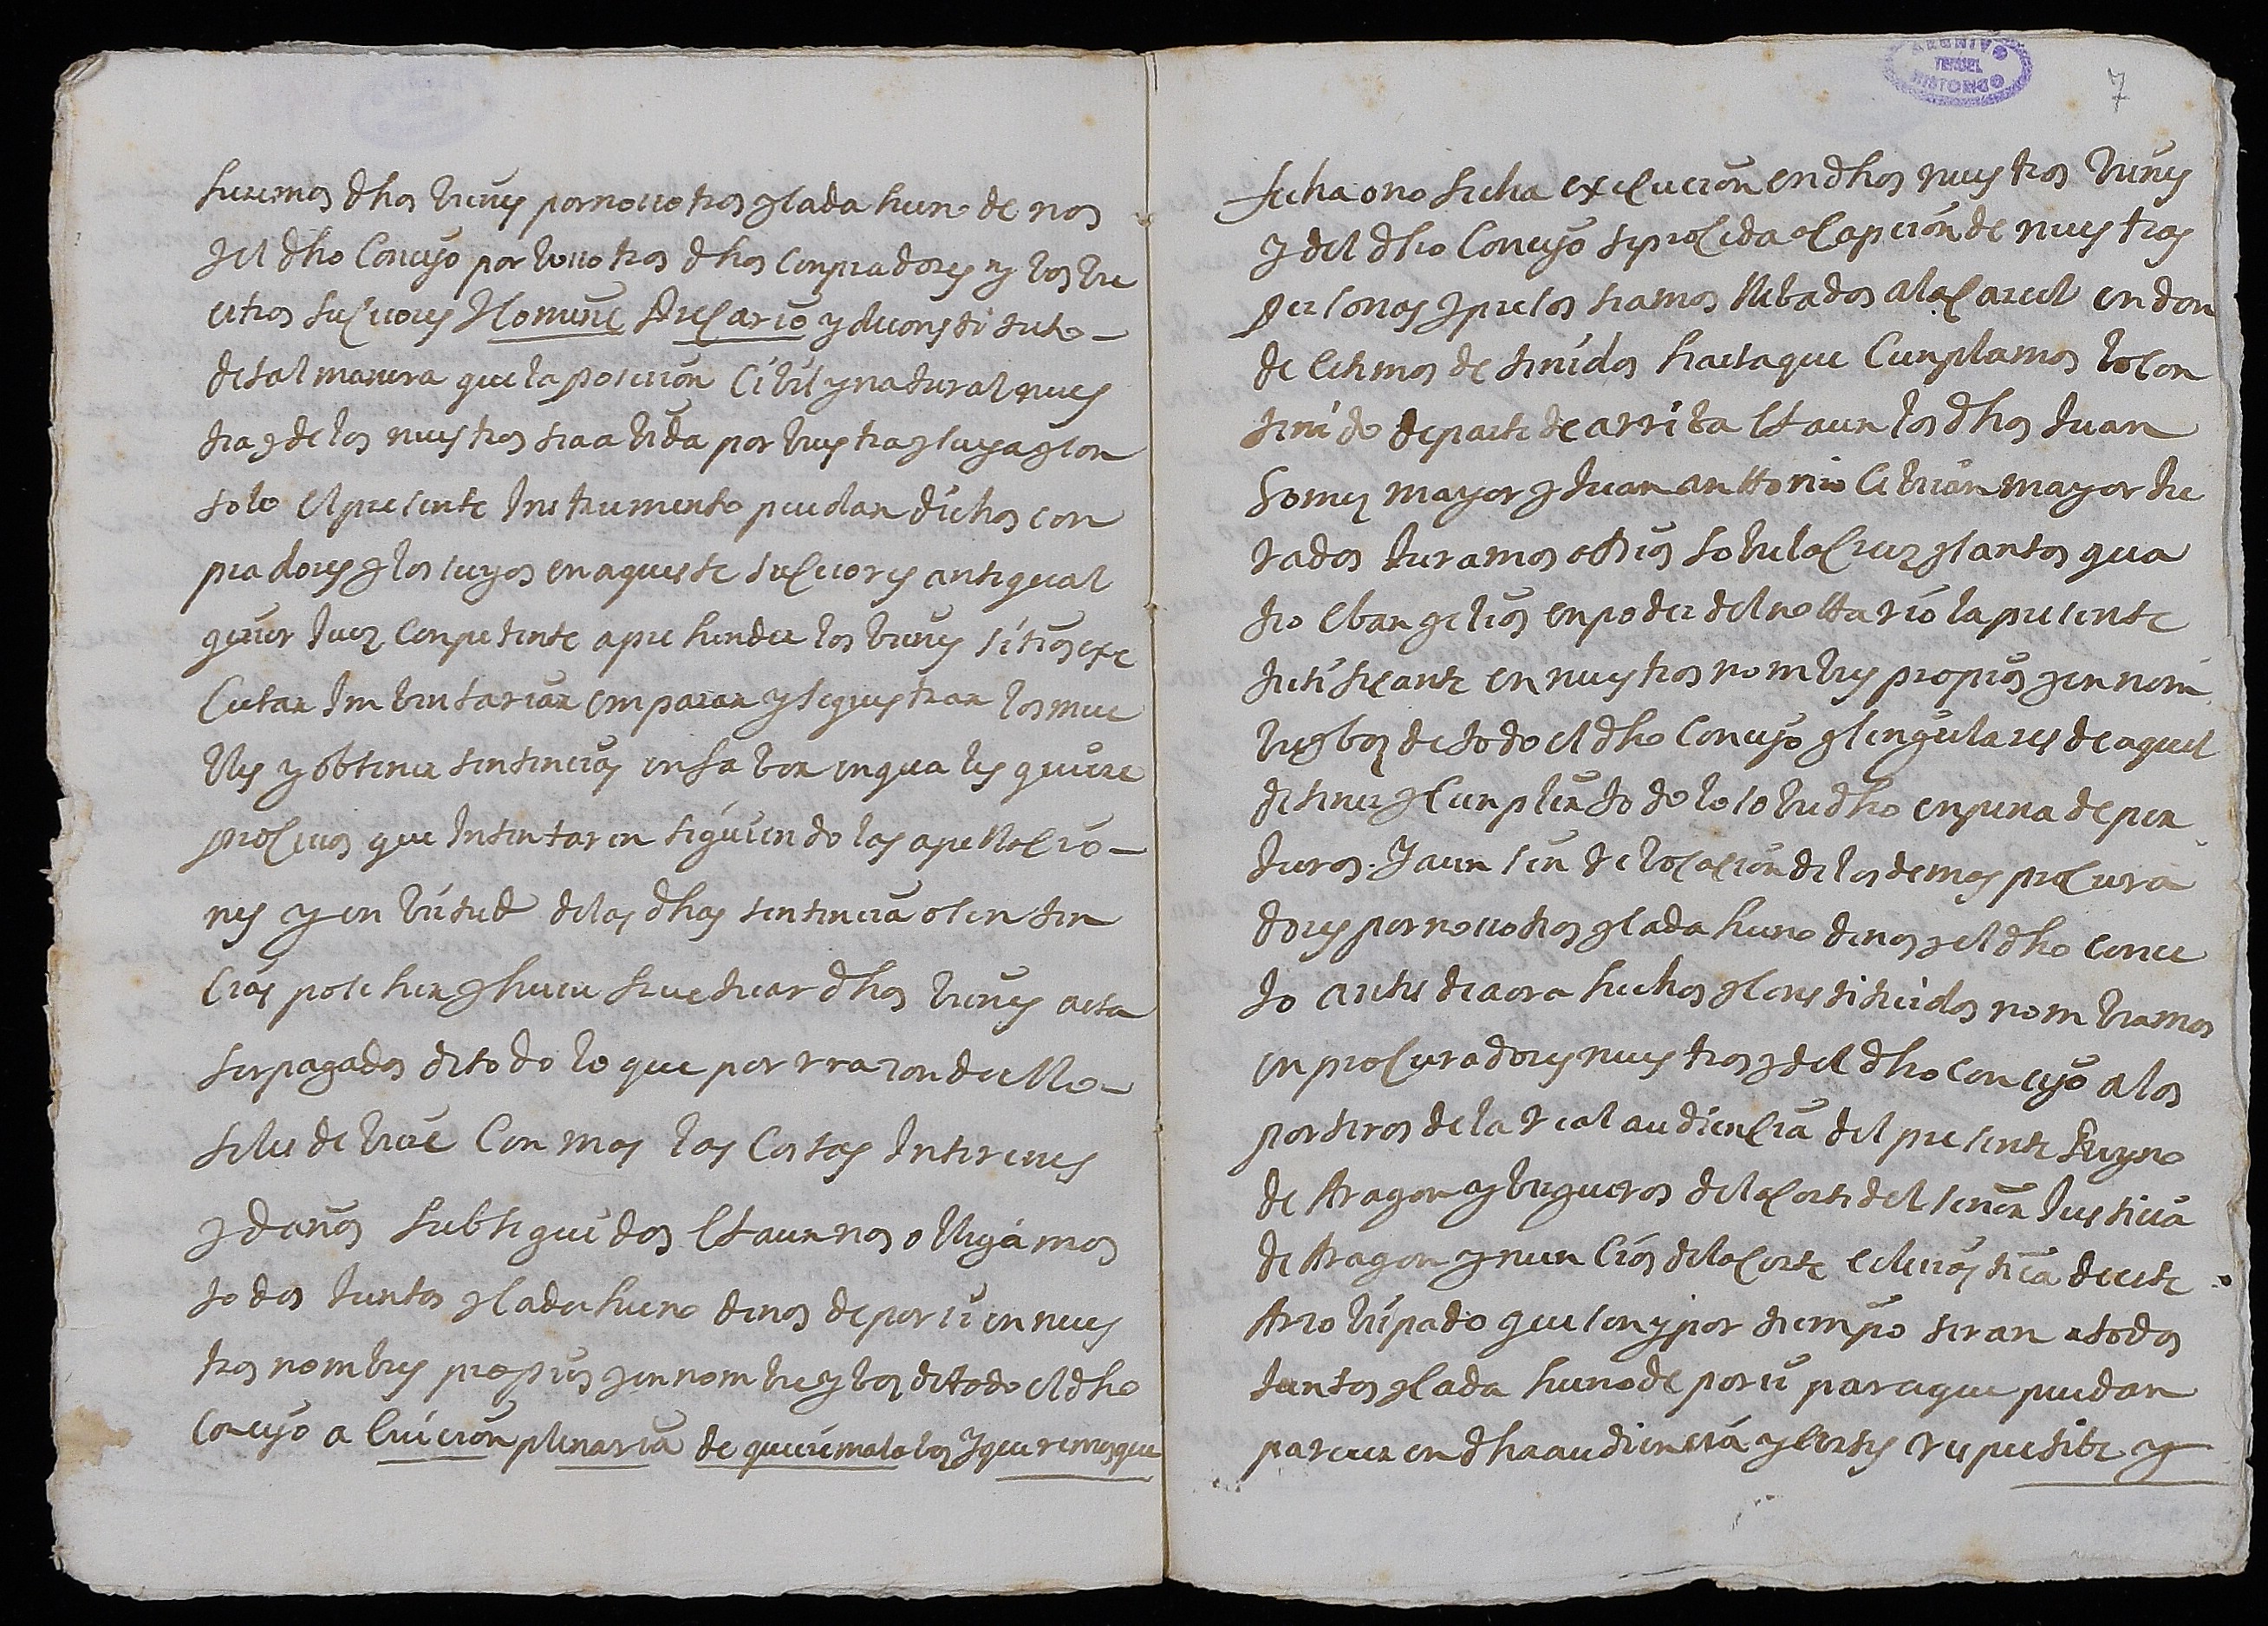 haremos dhos bienes por nosotros y cada huno de nos
y el dho Concejo por vosotros dhos conpradores y bostre
estros sucesores Nomine Precario y de constituto
de tal manera que la posesion Cibil y natural nues
tra y de los nuestros sea abida por buestra y suya y con
solo el presente Instrumento puedan dichos con
pradores y los suyos en aqueste sucesores ante qual
quier Juez Conpetente aprehender los bienes sitios exe
Cutar Inbentariar emparar y sequestrar los mue
bles y obtener sentencias en fabor en quales quiere
procesos que Intentaren siguiendo las apellacio
nes y en birtud de las dhas sentencia o senten
cias poseher y hucu frutuar dhos bienes asta
ser pagados de todo lo que por rrazon de ello
se les debiere Con mas las Costas Intereses
y daños subseguidos Et aun nos obligamos
todos Juntos y cada huno de nos de por si en nues
tros nombres propios y en nombre y boz de todo el dho
Concejo a Ebicion plenaria de quiere mala boz Y queremos que
ARCHIVO
TERUEL
HISTORICO
7
fecha o no fecha execucion en dhos nuestros bienes
y del dho Concejo se proceda a Capcion de nuestras
Personas y presos seamos llebados a la Carcel en don
de estemos detenidos hasta que Cunplamos lo con
tenido de parte de arriba Et aun los dhos Juan
Gomez mayor y Juan anttonio Cebrian mayor Ju
rados Juramos a Dios sobre la Cruz y santos qua
tro Ebangelios en poder del nottario la presente
testificante en nuestros nombres propios y en nom
bre y boz de todo el dho Concejo y singulares de aquel
de tener y Cunplir todo lo sobredho en pena de per
juros. Y aun sin rebocacion de los demas procura
dores por nosotros y cada huno de nos y el dho conce
jo antes de aora hechos y constituidos nombramos
en procuradores nuestros y del dho Concejo a los
porteros de la real audiencia del presente Reyno
de Aragon y bergueros de la Corte del señor Justicia
de Aragon y nuncios de la Corte eclesiastica de este
Arzobispado que son y por tiempo seran a todos
Juntos y cada huno de por si para que puedan
parecer en dha audiencia y Cortes respectibe y